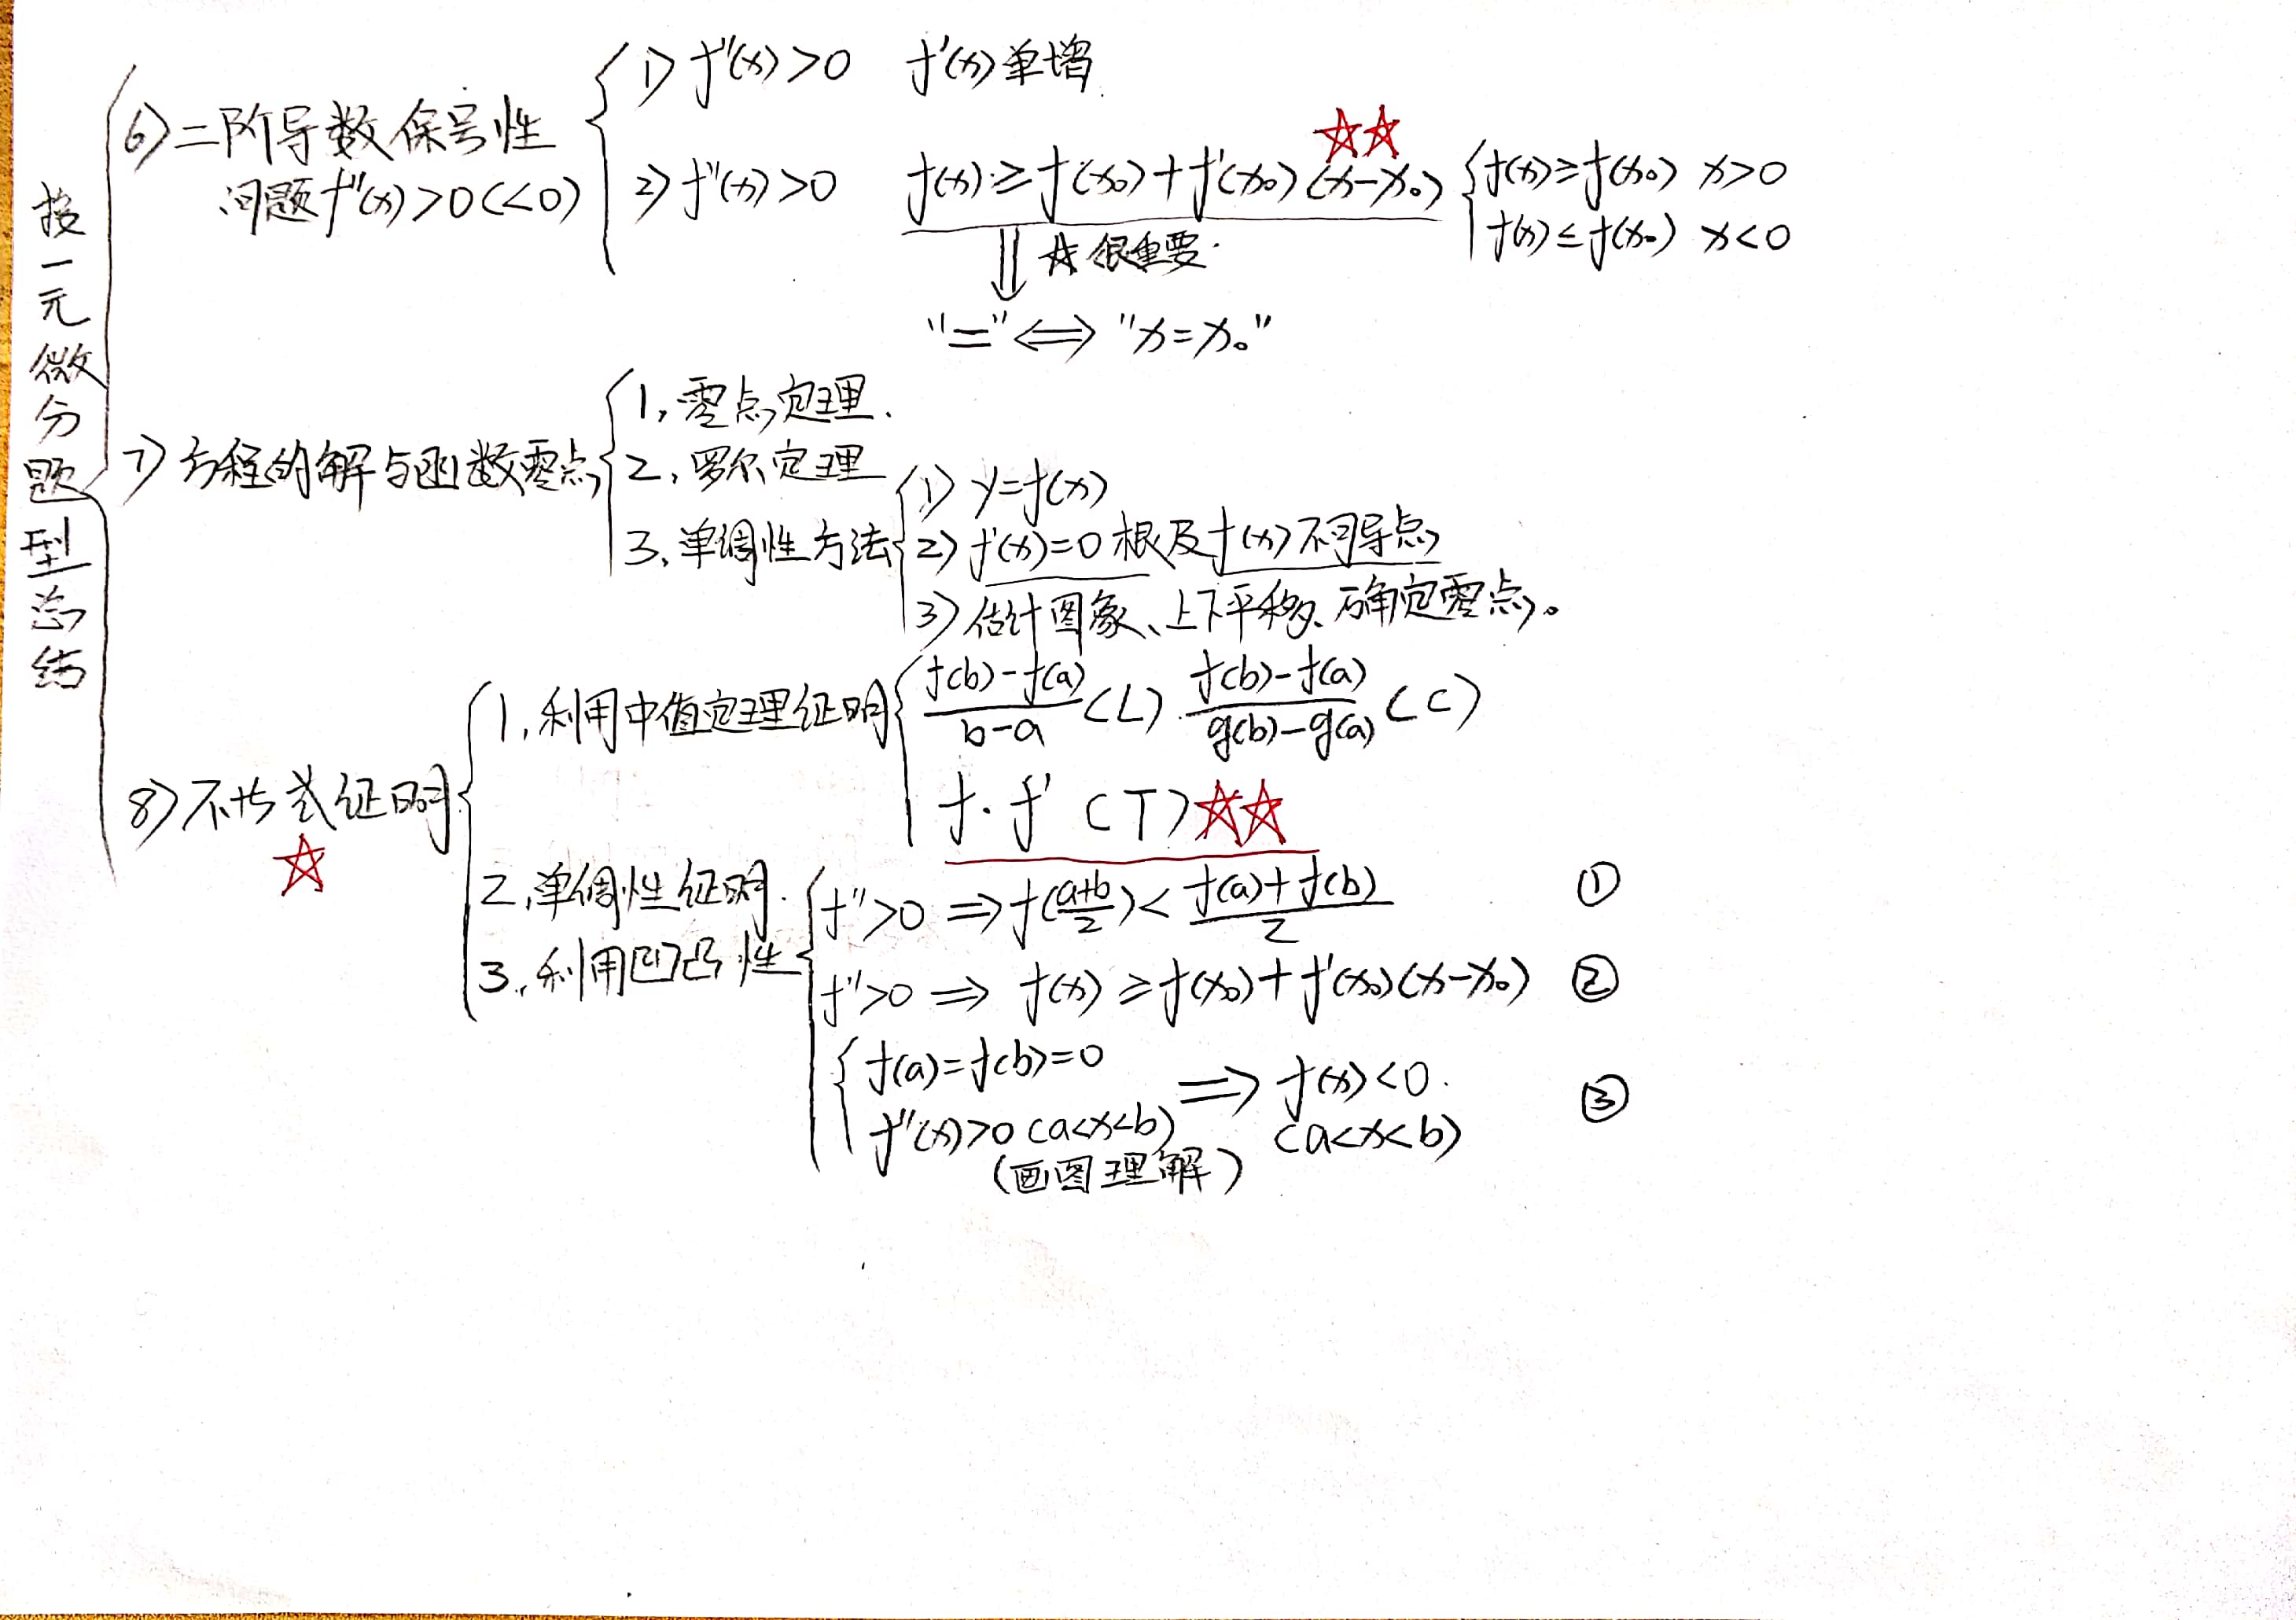 按一元微分题型总结
6) 二阶导数保号性
问题f''(x)>0(<0)
1) f''(x)>0 f'(x)单增.
☆☆
2) f''(x)>0 f(x)≥f(x₀)+f'(x₀)(x-x₀) { f(x)≥f(x₀) x>0
f(x)≤f(x₀) x<0
⇓ ☆ 很重要.
"=" ⟺ "x=x₀"
7) 方程的解与函数零点
1, 零点定理.
2, 罗尔定理
3, 单调性方法
1) y=f(x)
2) f'(x)=0 根及f(x)不可导点
3) 估计图象、上下平移、确定零点。
8) 不等式证明
☆
1, 利用中值定理证明
(f(b)-f(a))/(b-a) (L). (f(b)-f(a))/(g(b)-g(a)) (C)
f·f' (T)☆☆
2, 单调性证明.
3, 利用凹凸性
f''>0 ⟹ f((a+b)/2) < (f(a)+f(b))/2 ①
f''>0 ⟹ f(x)≥f(x₀)+f'(x₀)(x-x₀) ②
f(a)=f(b)=0
⟹ f(x)<0. ③
f''(x)>0 (a<x<b) (a<x<b)
(画图理解)